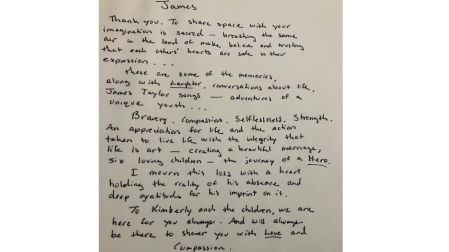 James
Thank you. To share space with your
imagination is sacred — breathing the same
air in the land of make believe and trusting
that each others' hearts are safe in their
expression...
These are some of the memories,
along with Laughter, conversations about life,
James Taylor songs — adventures of a
unique youth...
Bravery. Compassion. Selflessness. Strength.
An appreciation for life and the action
taken to live life with the integrity that
life is art — creating a beautiful marriage,
six loving children — the journey of a Hero.
I mourn this loss with a heart
holding the reality of his absence and
deep gratitudes for his imprint on it.
To Kimberly and the children, we are
here for you always. And will always
be there to shower you with Love and
Compassion.